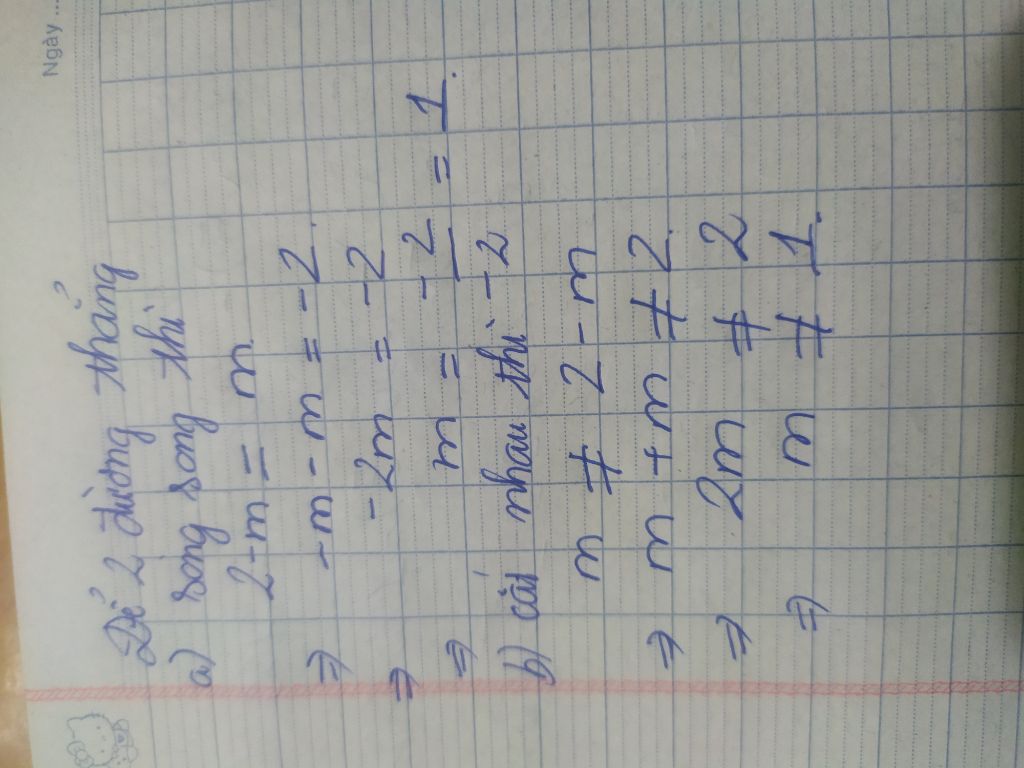 Ngày ...
Để 2 đường thẳng
a) song song thì
2-m = m
=) -m - m = -2.
=) -2m = -2
=) m = -2/-2 = 1.
b) cắt nhau thì
m ≠ 2 - m
=) m + m ≠ 2.
=) 2m ≠ 2
=) m ≠ 1.